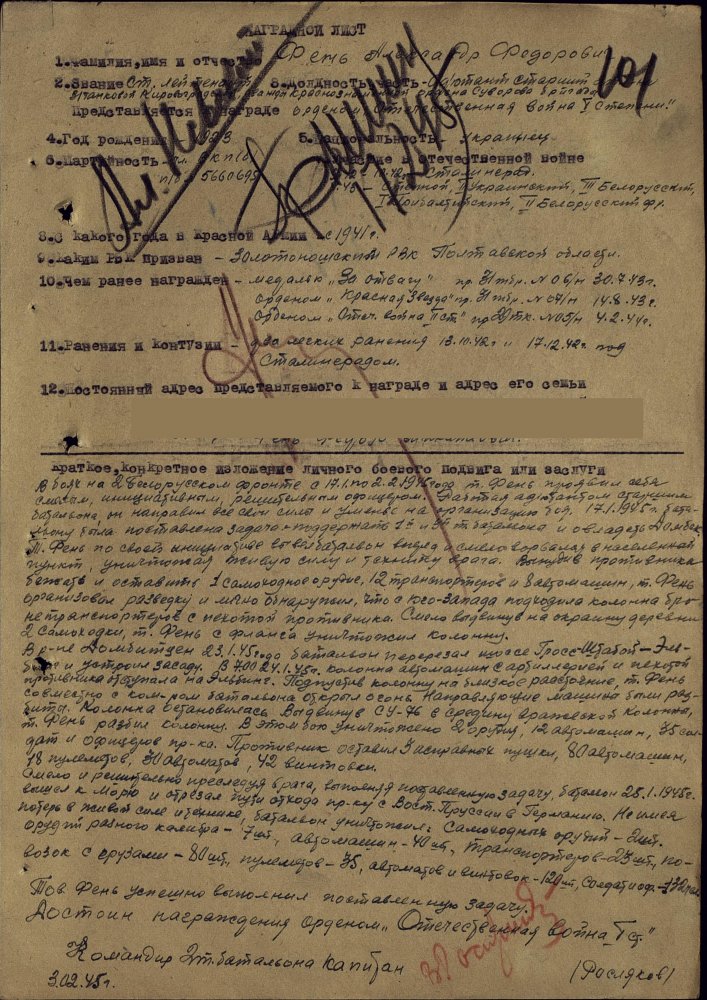 НАГРАДНОЙ ЛИСТ
1.Фамилия,имя и отчество Фень Александр Федорович
2.Звание Ст. лейтенант 3.Должность,часть - Адъютант старший
Представляется к награде орденом "Отечественная война I степени"
4.Год рождения 1923 5.Национальность - Украинец
6.Партийность - чл. ВКП/б/ участие в отечественной войне
п/б 5660695 Сталингр.
Степной, I Украинский, III Белорусский,
I Прибалтийский, II Белорусский фр.
8.С какого года в Красной Армии с 1941 г.
9.Каким РВК призван - Золотоношским РВК Полтавской области.
10.Чем ранее награжден - медалью "За отвагу" пр. 31 тбр. № 06/н 30.7.43г.
Орденом "Красная Звезда" пр. 31 тбр. № 07/н 14.8.43г.
Орденом "Отеч. война II ст" пр 29 тк. № 05/н 4.2.44г.
11.Ранения и контузии - два легких ранения 13.10.42г и 17.12.42г. под
Сталинградом.
12.Постоянный адрес представляемого к награде и адрес его семьи
Краткое,конкретное изложение личного боевого подвига или заслуги
В боях на 2 Белорусском фронте с 17.1. по 2.2.1945 года т. Фень проявил себя
смелым, инициативным, решительным офицером. Работая адъютантом старшим
батальона, он направил все свои силы и уменье на организацию боя. 17.1.1945 г. бата-
льону была поставлена задача поддержать батальона и овладеть
Т. Фень по своей инициативе вывел батальон вперед и смело ворвался в населенный
пункт, уничтожая живую силу и технику врага. Вынудив противника
бежать и оставить 1 самоходное орудие, 12 транспортеров и 8 автомашин, т. Фень
организовал разведку и обнаружил, что с юго-запада подходила колонна бро-
нетранспортеров с пехотой противника. Смело выдвинув на окраину деревни
2 самоходки, т. Фень с фланга уничтожил колонну.
В р-не Домбитцен 23.1.45 года батальон перерезал шоссе Гросс-Штабой - Эль-
бинг и устроил засаду. В 7.00 24.1.45г. колонна автомашин с артиллерией и пехотой
противника отступала на Эльбинг. Подпустив колонну на близкое расстояние, т. Фень
совместно с ком-ром батальона открыл огонь. Направляющие машины были раз-
биты. Колонна остановилась. Выдвинув СУ-76 в средину вражеской колонны,
т. Фень разбил колонну. В этом бою уничтожено 2 орудия, 12 автомашин, 75 сол-
дат и офицеров пр-ка. Противник оставил 3 исправных пушки, 80 автомашин,
18 пулеметов, 30 автоматов, 42 винтовки.
Смело и решительно преследуя врага, выполняя поставленную задачу батальон 25.1.1945г.
вышел к морю и отрезал пути отхода пр-ку с Вост. Пруссии в Германию. Не имея
потерь в живой силе и технике, батальон уничтожил: Самоходных орудий - 2 шт.
орудий разного калибра - 7 шт, автомашин - 40 шт, транспортеров - 23 шт, по-
возок с грузами - 80 шт, пулеметов - 75, автоматов и винтовок - 120 шт, солдат и оф. -
Тов Фень успешно выполнил поставленную задачу.
Достоин награждения орденом "Отечественная война I ст."
Командир 2 т. батальона капитан
3.02.45г. (Росляков)